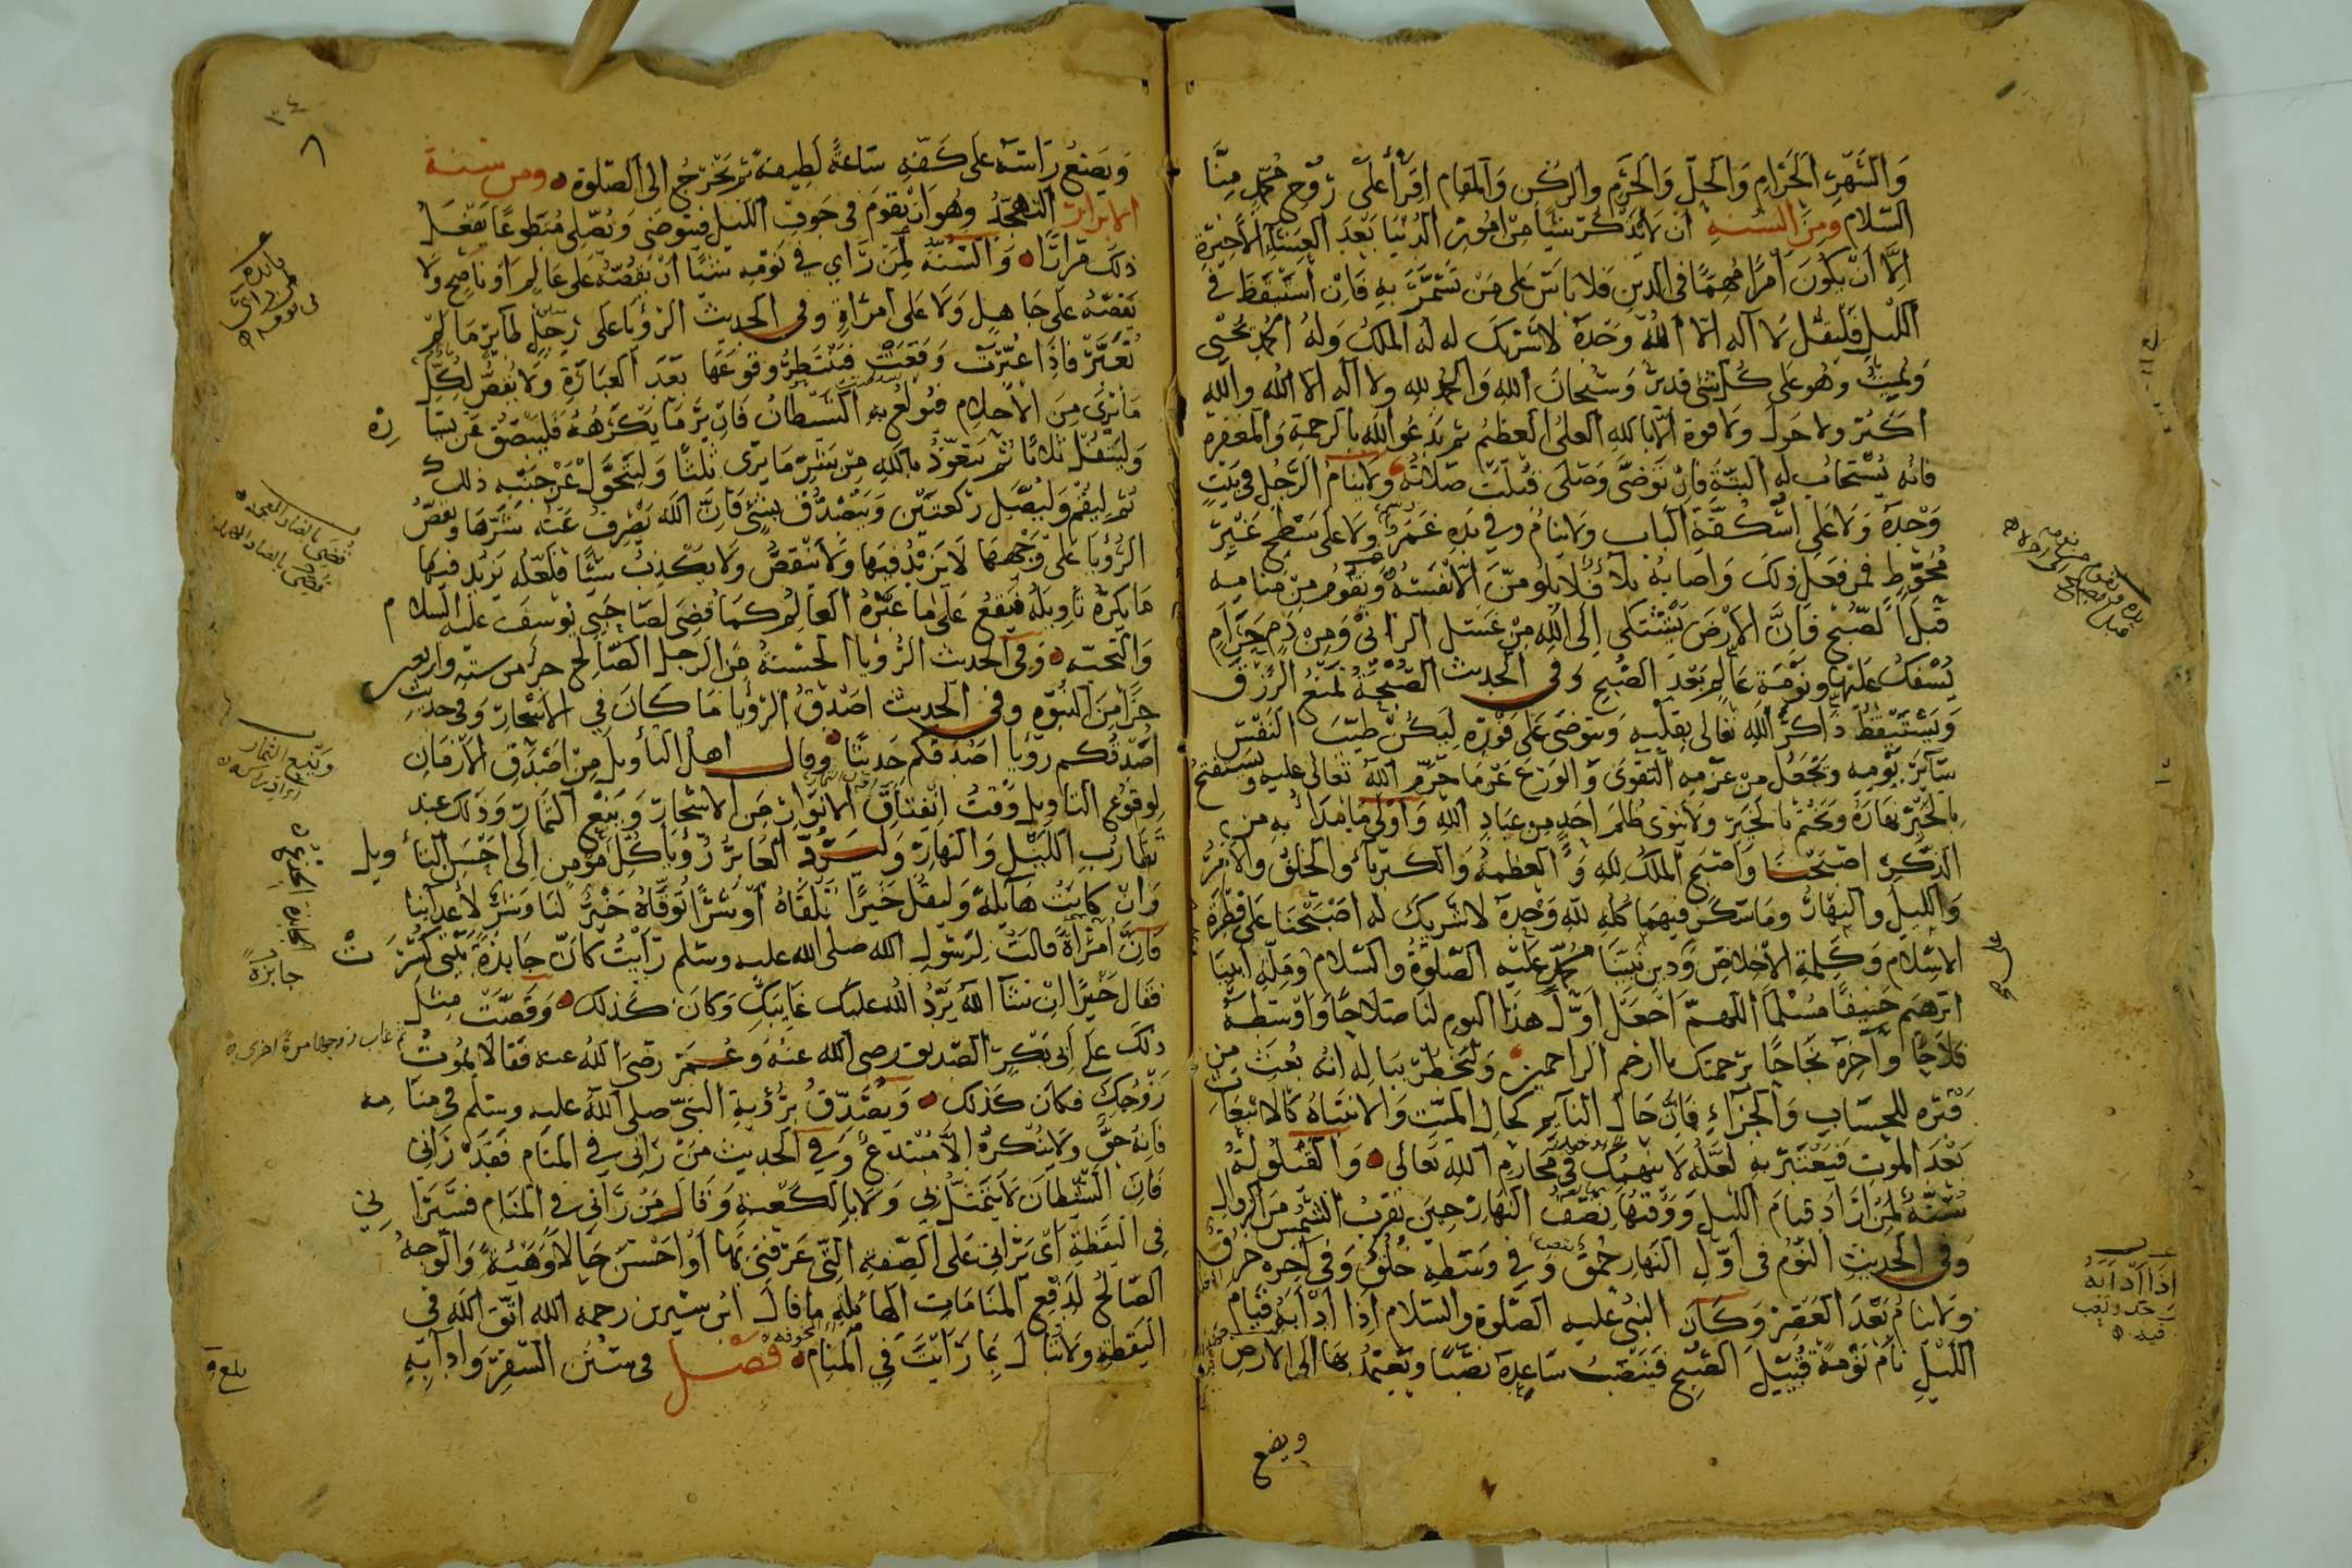 والشهر الحرام والحل والحرم والركن والمقام اقرأ على روح محمد منا
السلام ومن السنه ان لا يذكر شيئا من امور الدنيا بعد العشاء الاخيرة
الا أن يكون أمرا مهما في الدين فلا باس على من يستمر به فان استيقظ في
الليل فليقل لا اله الا الله وحده لا شريك له له الملك وله الحمد يحيي
ويميت وهو على كل شئ قدير وسبحان الله والحمد لله ولا اله الا الله والله
اكبر ولا حول ولا قوة الا بالله العلى العظيم ثم يدعو الله بالرحمة والمغفرة
فانه يستجاب له البتة فان توضى وصلى قبلت صلاته ولا ينام الرجل في بيت
وحده ولا على اسكفة الباب ولا ينام وفي يده غمر ولا على سطح غير
محوط فمن فعل ذلك واصابه بلاء فلا يلومن الا نفسه ويقوم من منامه
قبل الصبح فان الارض يشتكى الى الله من غسل الزانى ومن دم حرام
يسفك عليها ونومة عالم بعد الصبح وفي الحديث الصبحة تمنع الرزق
ويستيقظ ذاكر الله تعالى بقلبه ويتوضى على فوره ليكن طيب النفس
ساير يومه ويجعل من عزمه التقوى والورع عن ما حرم الله تعالى عليه ويستفتح
بالخير نهاره ويختم بالخير ولا ينوى ظلم احد من عباد الله واولى ما يبدأ به من
الذكر اصبحنا واصبح الملك لله والعظمة والكبرياء والخلق والامر
والليل والنهار وما سكن فيهما كله لله وحده لا شريك له اصبحنا على فطرة
الاسلام وكلمة الاخلاص ودين نبينا محمد عليه الصلوة والسلام وملة ابينا
ابرهيم حنيفا مسلما اللهم اجعل اول هذا اليوم لنا صلاحا واوسطه
فلاحا وآخره نجاحا برحمتك يا ارحم الراحمين وليخطر بباله انه بعث من
قبره للحساب والجزاء فان حال النايم كحال الميت والانتباه كالانبعاث
بعد الموت فيعتبر به لعله لا ينهمك في محارم الله تعالى والقيلولة
سنة لمن اراد قيام الليل ووقتها نصف النهار حين تقرب الشمس من الزوال
وفي الحديث النوم في اول النهار حمق وفي وسطه خلق وفي اخره خرق
ولا ينام بعد العصر وكان النبي عليه الصلوة والسلام اذا اداٰبه قيام
الليل نام نومة قبيل الصبح فينصب ساعده نصبا ويعتمد بها الى الارض
ويضع
اذا ادابه
جد وتعب
فيه
٣٤
ويضع راسه على كفه ساعة لطيفة ثم يخرج الى الصلوة ومن سنة
الابرار التهجد وهو ان يقوم في جوف الليل فيتوضى ويصلى متطوعا يفعل
ذلك مرارا والسنة لمن راي في نومه شيئا ان يقصه على عالم او ناصح ولا
يقصه على جاهل ولا على امراة وفي الحديث الرؤيا على رجل طاير ما لم
تعبر فاذا عبرت وقعت فينتظر وقوعها بعد العبارة ولا يقص لكل
ما يرى من الاحلام فيولع به الشيطان فان ير ما يكرهه فليبصق عن يساره
وليتفل ثلاثا ثم يتعوذ بالله من شر ما يرى ثلثا وليتحول عن جنبه ذلك
ثم ليقم وليصل ركعتين ويتصدق بشئ فان الله يصرف عنه شرها ويقص
الرؤيا على وجهها لا يزيد فيها ولا ينقص ولا يكذب شيئا فلعله يزيد فيها
ما يكره تاويله فيقع على ما عبره العالم كما قضى لصاحبى يوسف عليه السلام
وفي الحديث الرؤيا الحسنة من الرجل الصالح جزء من ستة واربعين
جزا من النبوه وفي الحديث اصدق الرؤيا ما كان في الاسحار وفي حديث
اصدقكم رؤيا اصدقكم حديثا وقال اهل التأويل من اصدق الازمان
لوقوع التاويل وقت انفتاق الانوار من الاشجار وينع الثمار وذلك عند
تقارب الليل والنهار وليسرد العابر رؤيا كل مؤمن الى احسن التأويل
وان كانت هايلة وليقل خيرا تلقاه او شرا توقاه خير لنا وشر لاعداينا
فان امرأة قالت لرسول الله صلى الله عليه وسلم رأيت كان جايزة بيتى كسرت
فقال خيرا ان شاء الله يرد الله عليك غايبك وكان كذلك وقصت مثل
ذلك على ابى بكر الصديق رضى الله عنه وعمر رضى الله عنه فقالا يموت
زوجك فكان كذلك ويصدق برؤية النبي صلى الله عليه وسلم في منامه
فانه حق ولا ينكره الا مبتدع وفي الحديث من رانى في المنام فقد رانى
فان الشيطان لا يتمثل بي ولا بالكعبة وقال من رآنى في المنام فسيرانى
في اليقظة اى يرانى على الصفة التى عرفنى بها او احسن حالا وهيئة والوجه
الصالح لدفع المنامات الهائلة ما قال ابن سيرين رحمه الله اتق الله في
اليقظة ولا تبال بما رايت في المنام فصل في سنن السفر وادابه
ثم غاب زوجها مرة اخرى